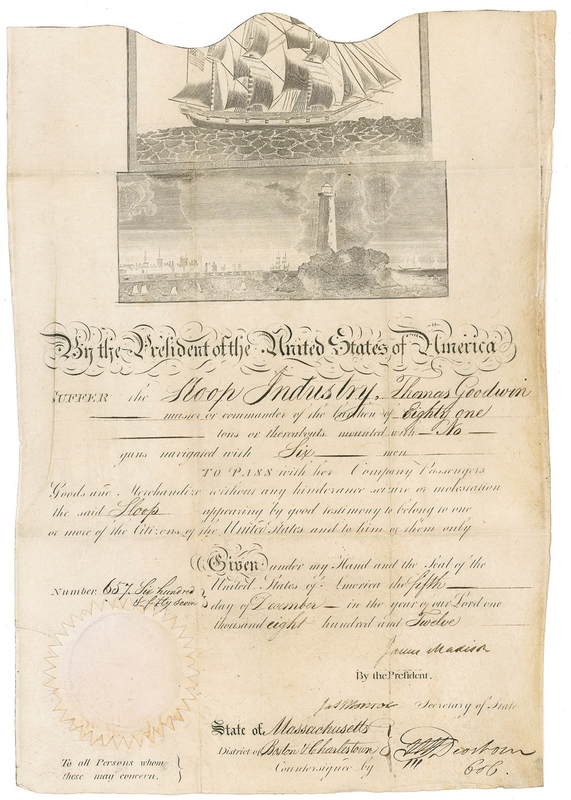 By the President of the United States of America
SUFFER the Sloop Industry, Thomas Goodwin
master or commander of the burthen of Eighty one
tons or thereabouts mounted with No
guns navigated with Six men
TO PASS with her Company Passengers
Goods and Merchandize without any hinderance seizure or molestation
the said Sloop appearing by good testimony to belong to one
or more of the Citizens of the United States and to him or them only
Given under my Hand and the Seal of the
United States of America the fifth
day of December in the year of our Lord one
thousand eight hundred and Twelve
Number. 657. Six hundred
& fifty seven
James Madison
By the President.
Jas Monroe Secretary of State
State of, Massachusetts
District of Boston & Charlestown
Countersigned by
Dearborn
Col.
To all Persons whom
these may concern.